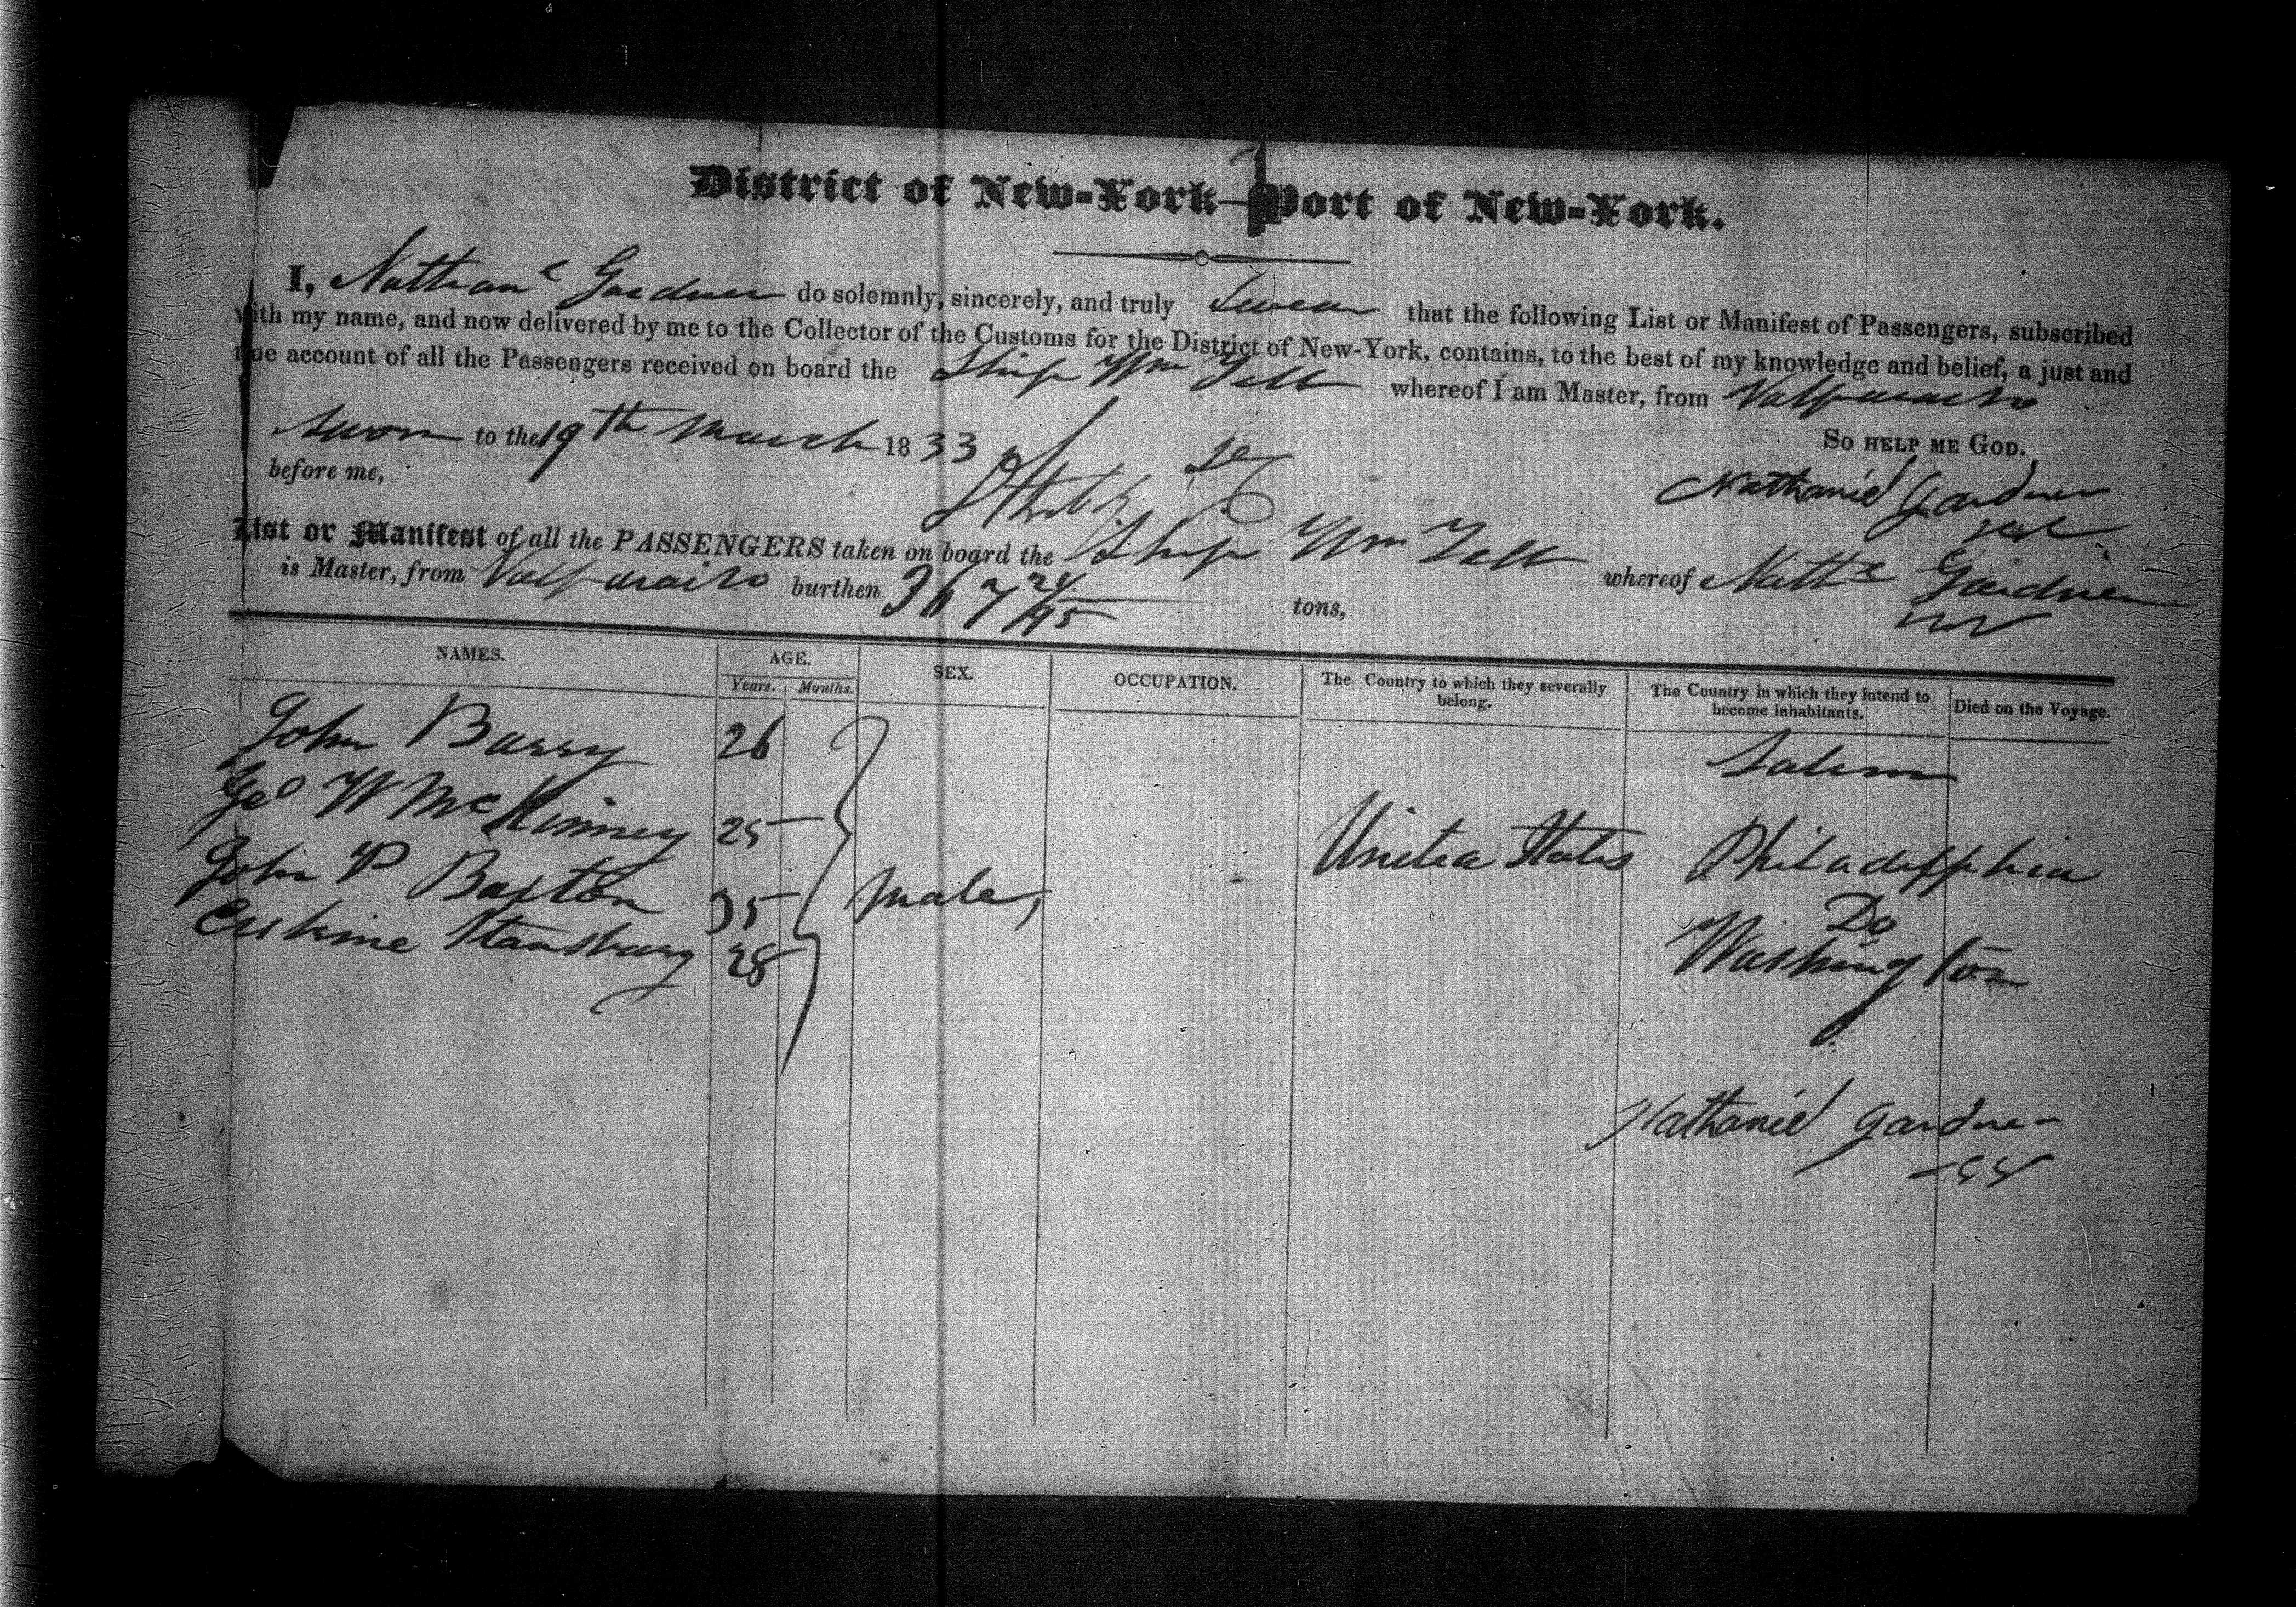 District of New-York—Port of New-York.
I, Nathan^l Gardner do solemnly, sincerely, and truly Swear that the following List or Manifest of Passengers, subscribed
with my name, and now delivered by me to the Collector of the Customs for the District of New-York, contains, to the best of my knowledge and belief, a just and
true account of all the Passengers received on board the Ship Wm Tell whereof I am Master, from Valparaiso
Sworn to the 19th March 1833 So help me God.
before me,
Nathaniel Gardner
List or Manifest of all the PASSENGERS taken on board the Ship Wm Tell whereof Nath^l Gardner
is Master, from Valparaiso burthen 367 24/95 tons,
NAMES. AGE. SEX. OCCUPATION. The Country to which they severally belong. The Country in which they intend to become inhabitants. Died on the Voyage.
Years. Months.
John Barry 26 Salem
Geo W McKinney 25 United States Philadelphia
John P Barton 35 Male, Do
Erskine Stansbury 28 Washington
Nathaniel Gardner